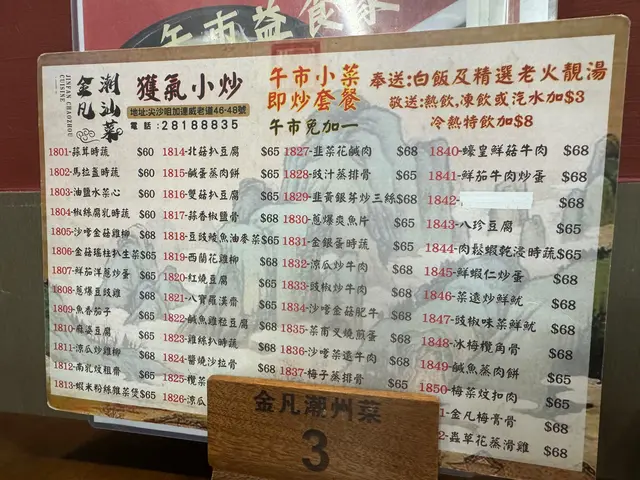 午市益食家
JINFAN CHAOZHOU CUISINE
金凡
潮汕菜
獲氣小炒
地址:尖沙咀加連威老道46-48號
電話:28188835
午市小菜
即炒套餐
午市免加一
奉送:白飯及精選老火靚湯
敬送:熱飲,凍飲或汽水加$3
冷熱特飲加$8
1801-蒜茸時蔬 $60
1802-馬拉盞時蔬 $60
1803-油鹽水菜心 $60
1804-椒絲腐乳時蔬 $60
1805-沙嗲金菇雞柳 $68
1806-金菇瑤柱扒生菜 $65
1807-鮮茄洋蔥炒蛋 $65
1808-蔥爆豆豉雞 $68
1809-魚香茄子 $65
1810-麻婆豆腐 $65
1811-涼瓜炒雞柳 $68
1812-南乳炆粗齋 $65
1813-蝦米粉絲雜菜煲 $65
1814-北菇扒豆腐 $65
1815-鹹蛋蒸肉餅 $65
1816-雙菇扒豆腐 $65
1817-蒜香椒鹽骨 $68
1818-豆豉鯪魚油麥菜 $65
1819-西蘭花雞柳 $68
1820-紅燒豆腐 $65
1821-八寶羅漢齋 $65
1822-鹹魚雞粒豆腐 $68
1823-雞絲扒時蔬 $68
1824-醬燒沙拉骨 $68
1825-欖菜
1826-涼瓜
1827-韭菜花鹹肉 $68
1828-豉汁蒸排骨 $68
1829-韭黃銀芽炒三絲 $68
1830-蔥爆爽魚片 $68
1831-金銀蛋時蔬 $65
1832-涼瓜炒牛肉 $68
1833-豉椒炒牛肉 $68
1834-沙嗲金菇肥牛 $68
1835-菜甫叉燒煎蛋 $68
1836-沙嗲菜遠牛肉 $68
1837-梅子蒸排骨 $65
1840-蠔皇鮮菇牛肉 $68
1841-鮮茄牛肉炒蛋 $68
1842- $68
1843-八珍豆腐 $68
1844-肉鬆蝦乾浸時蔬 $65
1845-鮮蝦仁炒蛋 $68
1846-菜遠炒鮮魷 $68
1847-豉椒味菜鮮魷 $68
1848-冰梅欖角骨 $68
1849-鹹魚蒸肉餅 $65
1850-梅菜炆扣肉 $65
1-金凡梅膏骨 $68
2-蟲草花蒸滑雞 $68
金凡潮州菜
3